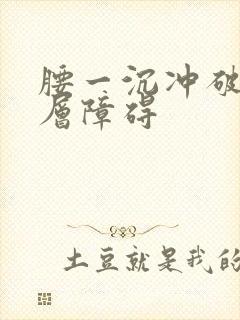 腰一沉冲破
层障碍
土豆就是我的